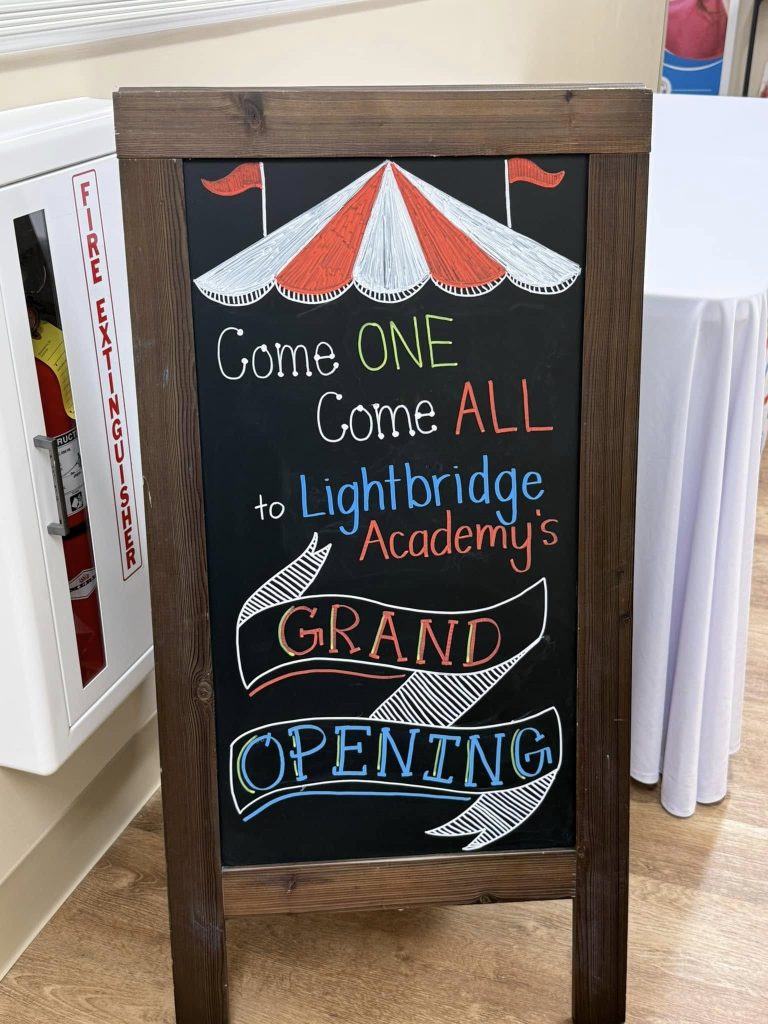 FIRE EXTINGUISHER
Come ONE
Come ALL
to Lightbridge
Academy's
GRAND
OPENING